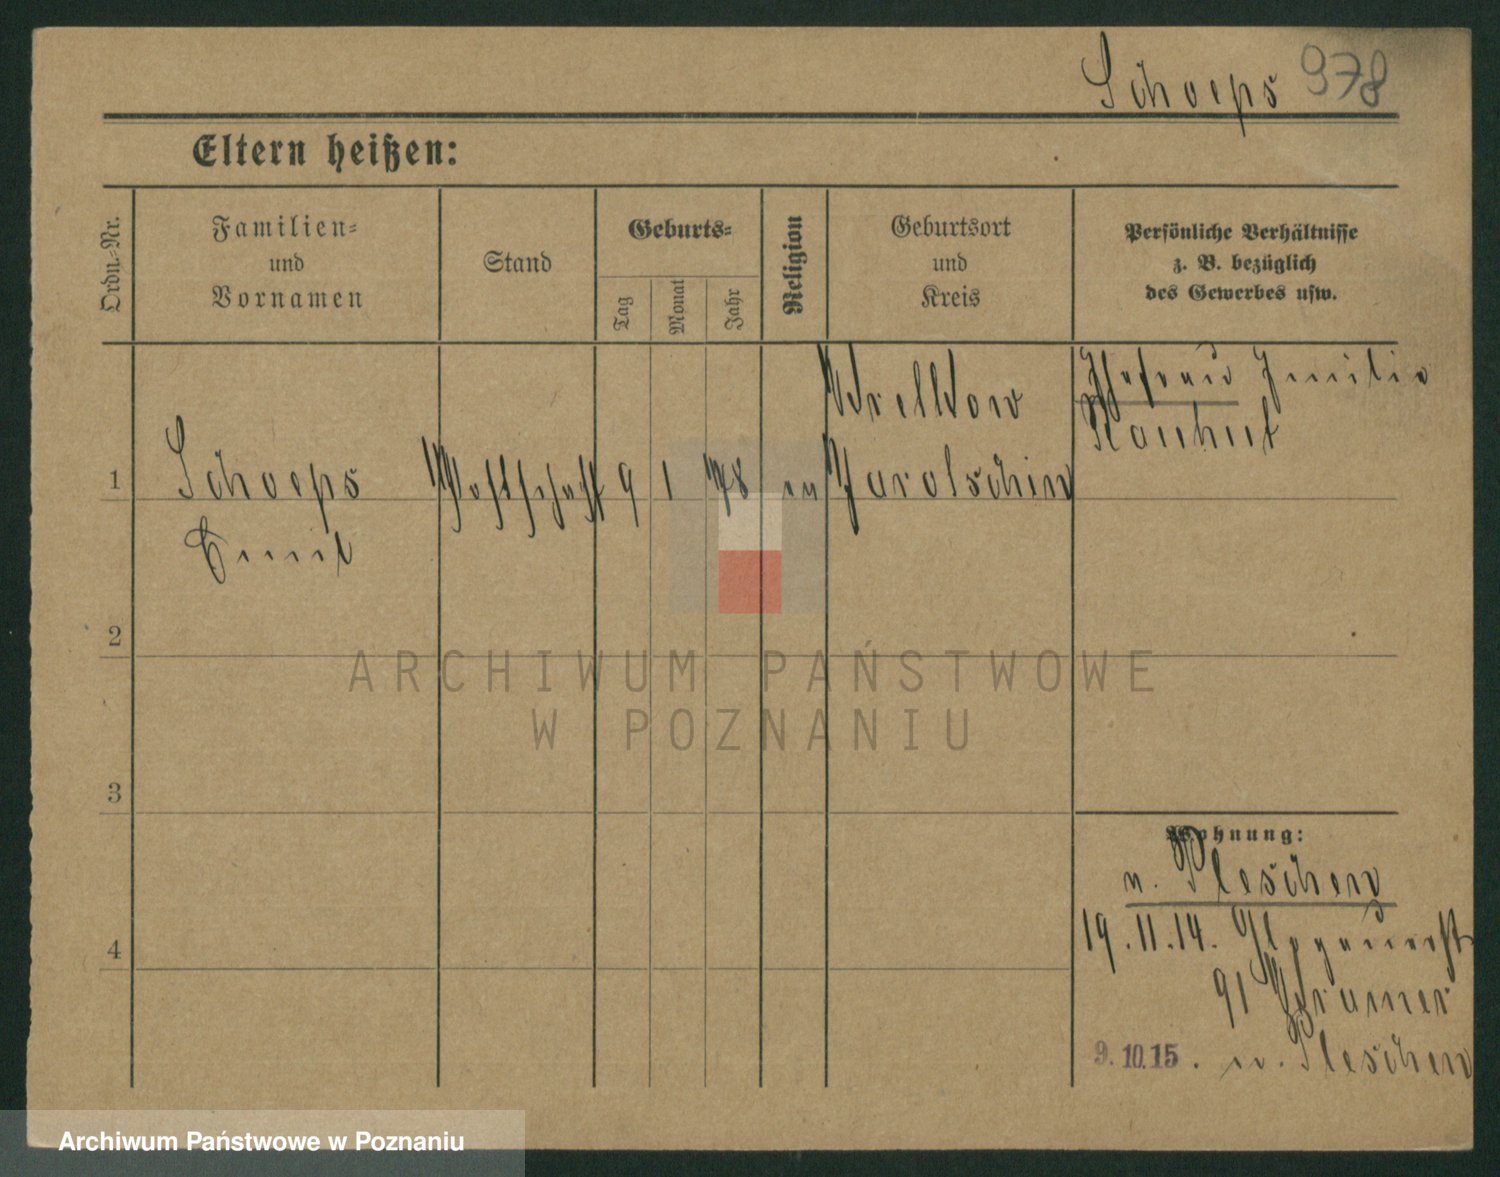 Schoeps 978
Eltern heißen:
Ordn.-Nr.
Familien-
und
Vornamen
Stand
Geburts-
Tag
Monat
Jahr
Religion
Geburtsort
und
Kreis
Persönliche Verhältnisse
z. B. bezüglich
des Gewerbes usw.
1
Schoeps
Emil
9 1 78 ev
Jarotschin
Ehefrau Emilie
Rauhut
2
3
4
Wohnung:
n. Pleschen
19.11.14.
91 Kramer
9.10.15. n. Pleschen
ARCHIWUM PAŃSTWOWE
W POZNANIU
Archiwum Państwowe w Poznaniu